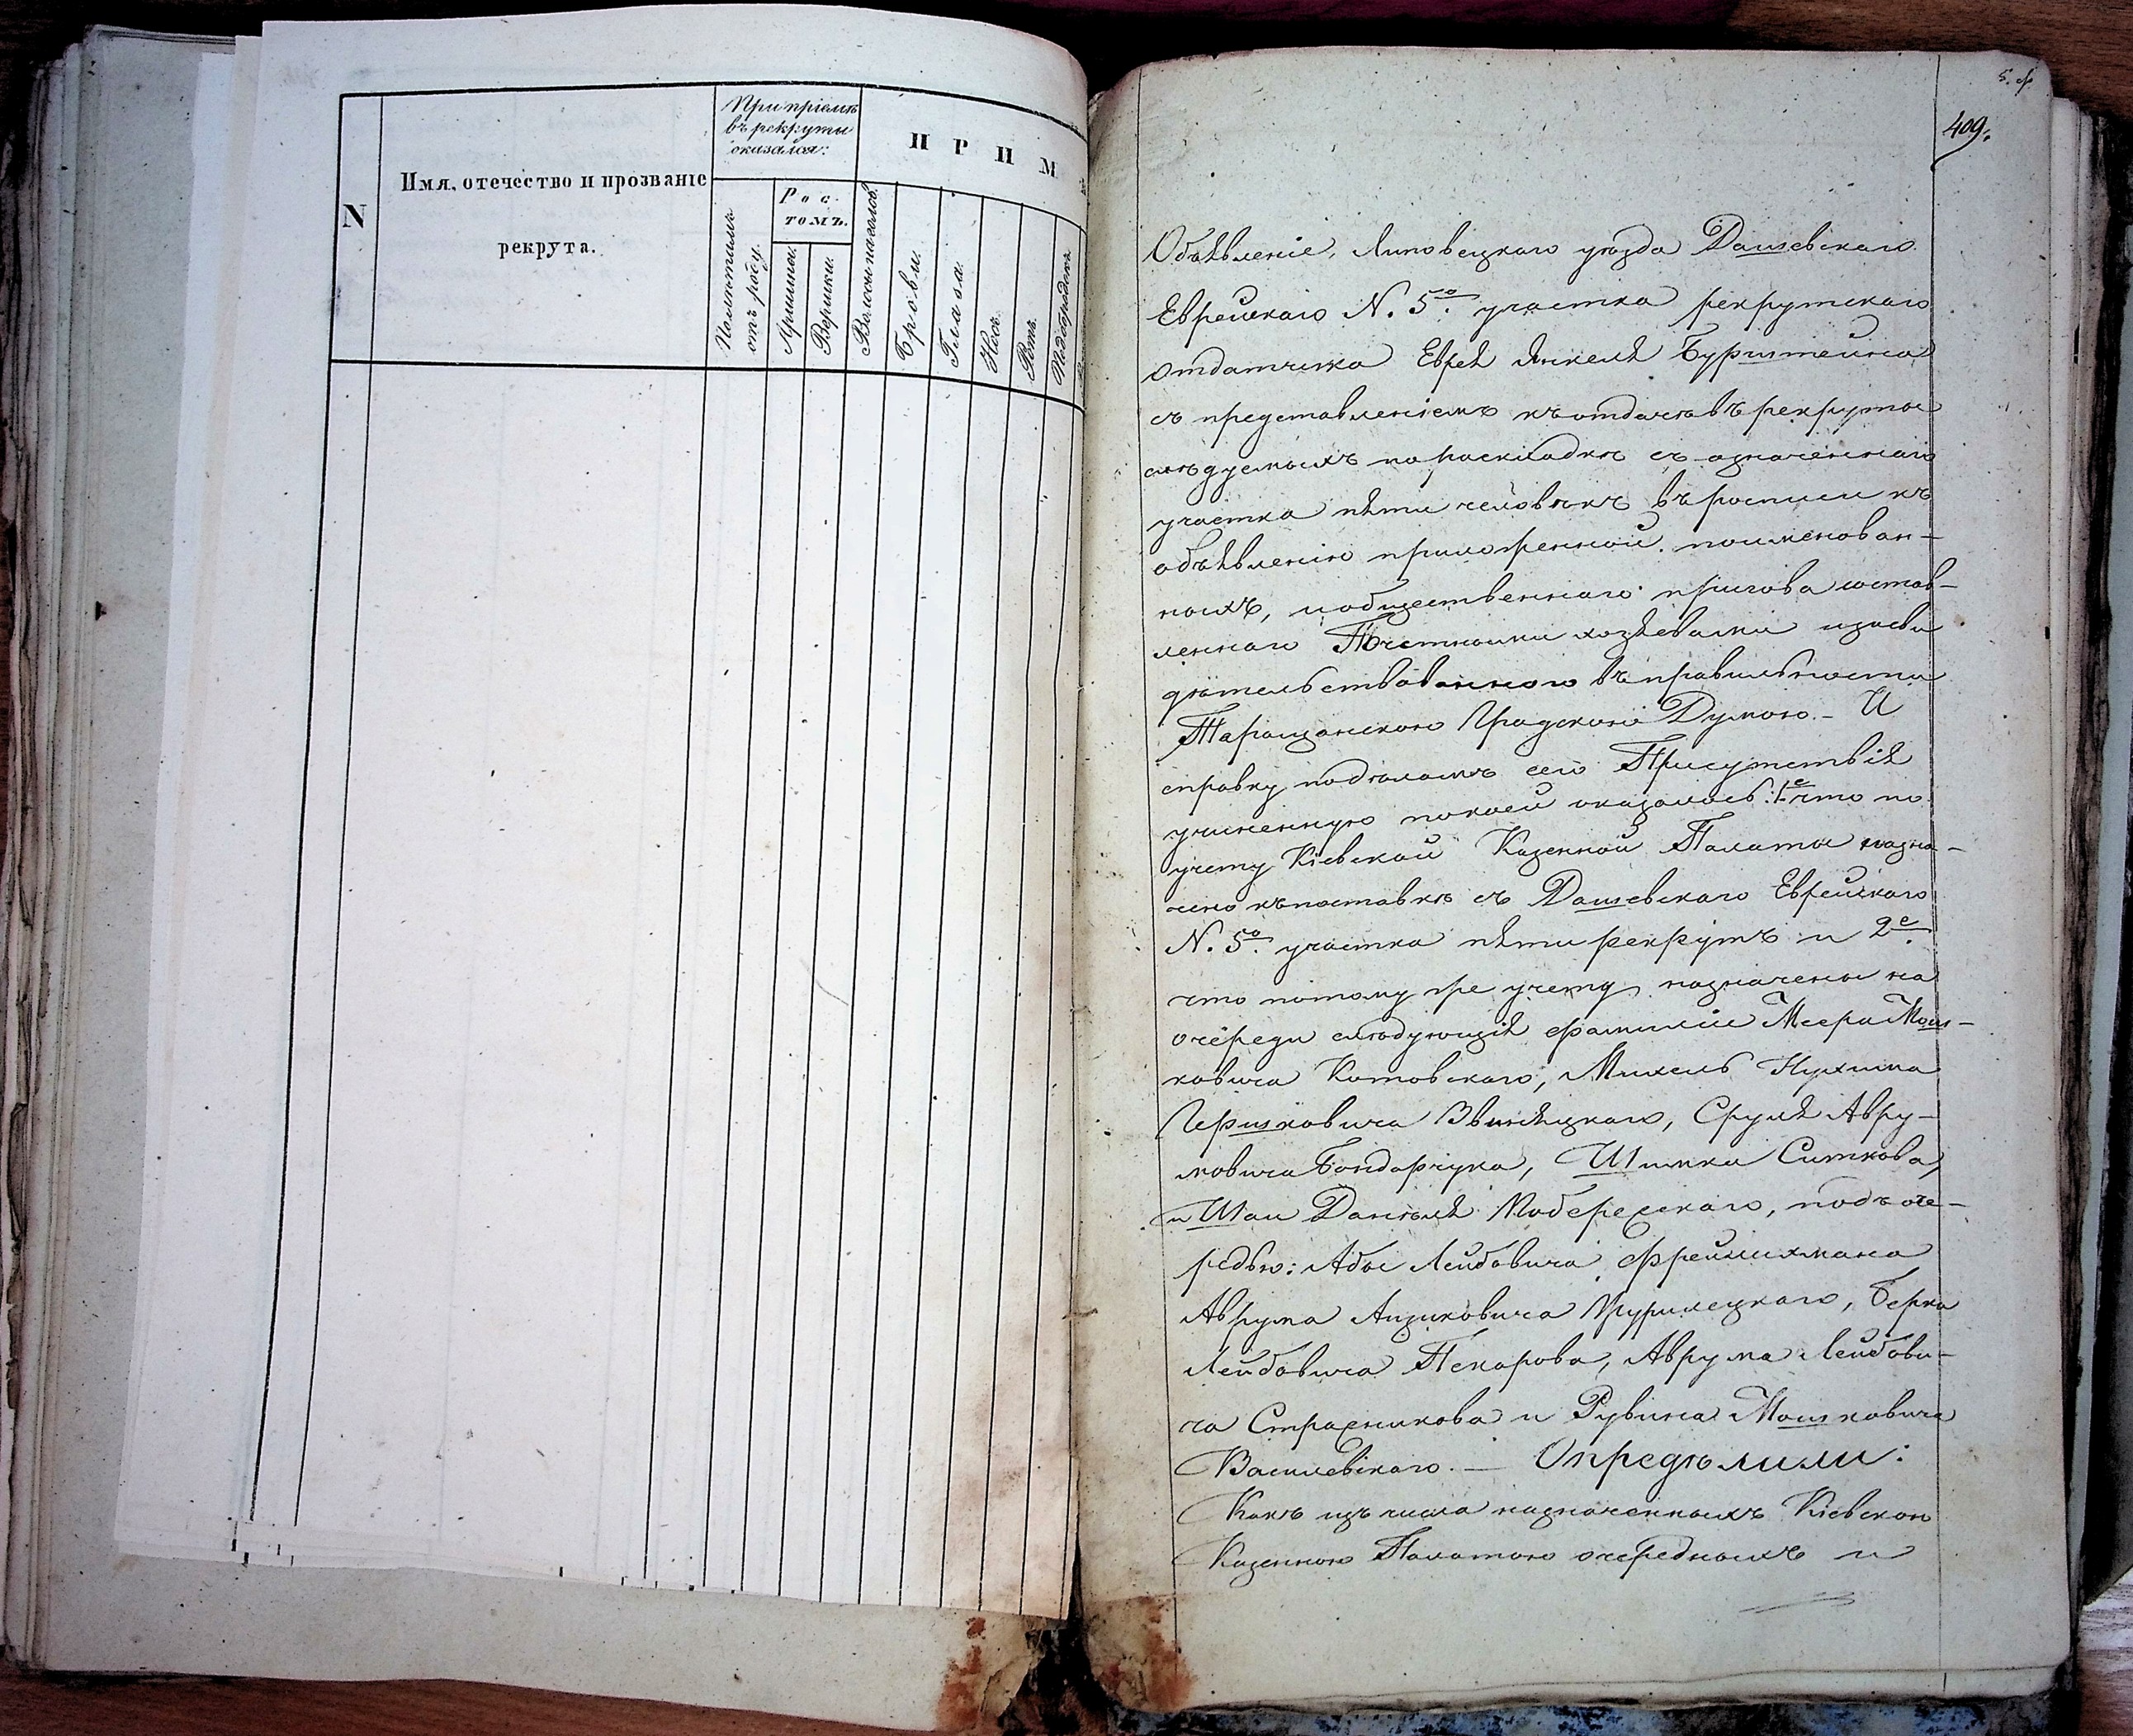 N
Имя, отечество и прозваніе
рекрута.
При пріемѣ
въ рекруты
оказался:
Полнотимъ
отъ роду.
Рос-
томъ.
Аршины.
Вершки.
ПРИМ
Волосы на голов.
Брови.
Глаза.
Носъ.
Ротъ.
Подбородокъ.
409.
Объявленіе, Липовецкаго уѣзда Дашевскаго
Еврейскаго N. 5го участка рекрутскаго
отдатчика Еврея Янкеля Бурштейна
съ представленіемъ къ отдачѣ въ рекруты
слѣдуемыхъ по раскладкѣ съ означеннаго
участка пяти человѣкъ въ росписи къ
объявленію приложенной поименован-
ныхъ, и общественнаго пригова состав-
леннаго Почетными хозяевами и засви
дѣтельствованнаго въ правильности
Таращанскою Градскою Думою. - И
справку подѣламъ сего Присутствія
учиненную по коей оказалось: 1е что по
учету Кіевской Казенной Палаты назна-
чено къ поставкѣ съ Дашевскаго Еврейскаго
N. 5го участка пяти рекрутъ и 2е
что потому же учету назначены на
очереди слѣдующія фамиліи Меера Мош-
ковича Китовскаго, Михель Нухима
Гершковича Звиняцкаго, Сруля Авру-
мовича Бондарчука, Шимки Ситкова,
и Шаи Даніеля Побережскаго, подъ оче-
редью: Абы Лейбовича Фрейлихмана
Аврума Ициковича Журилецкаго, Берка
Лейбовича Пекарова, Аврума Лейбови-
ча Стражникова и Рувина Мошковича
Василевскаго. — Опредѣлили:
Какъ изъ числа назначенныхъ Кіевскою
Казенною Палатою очередныхъ и